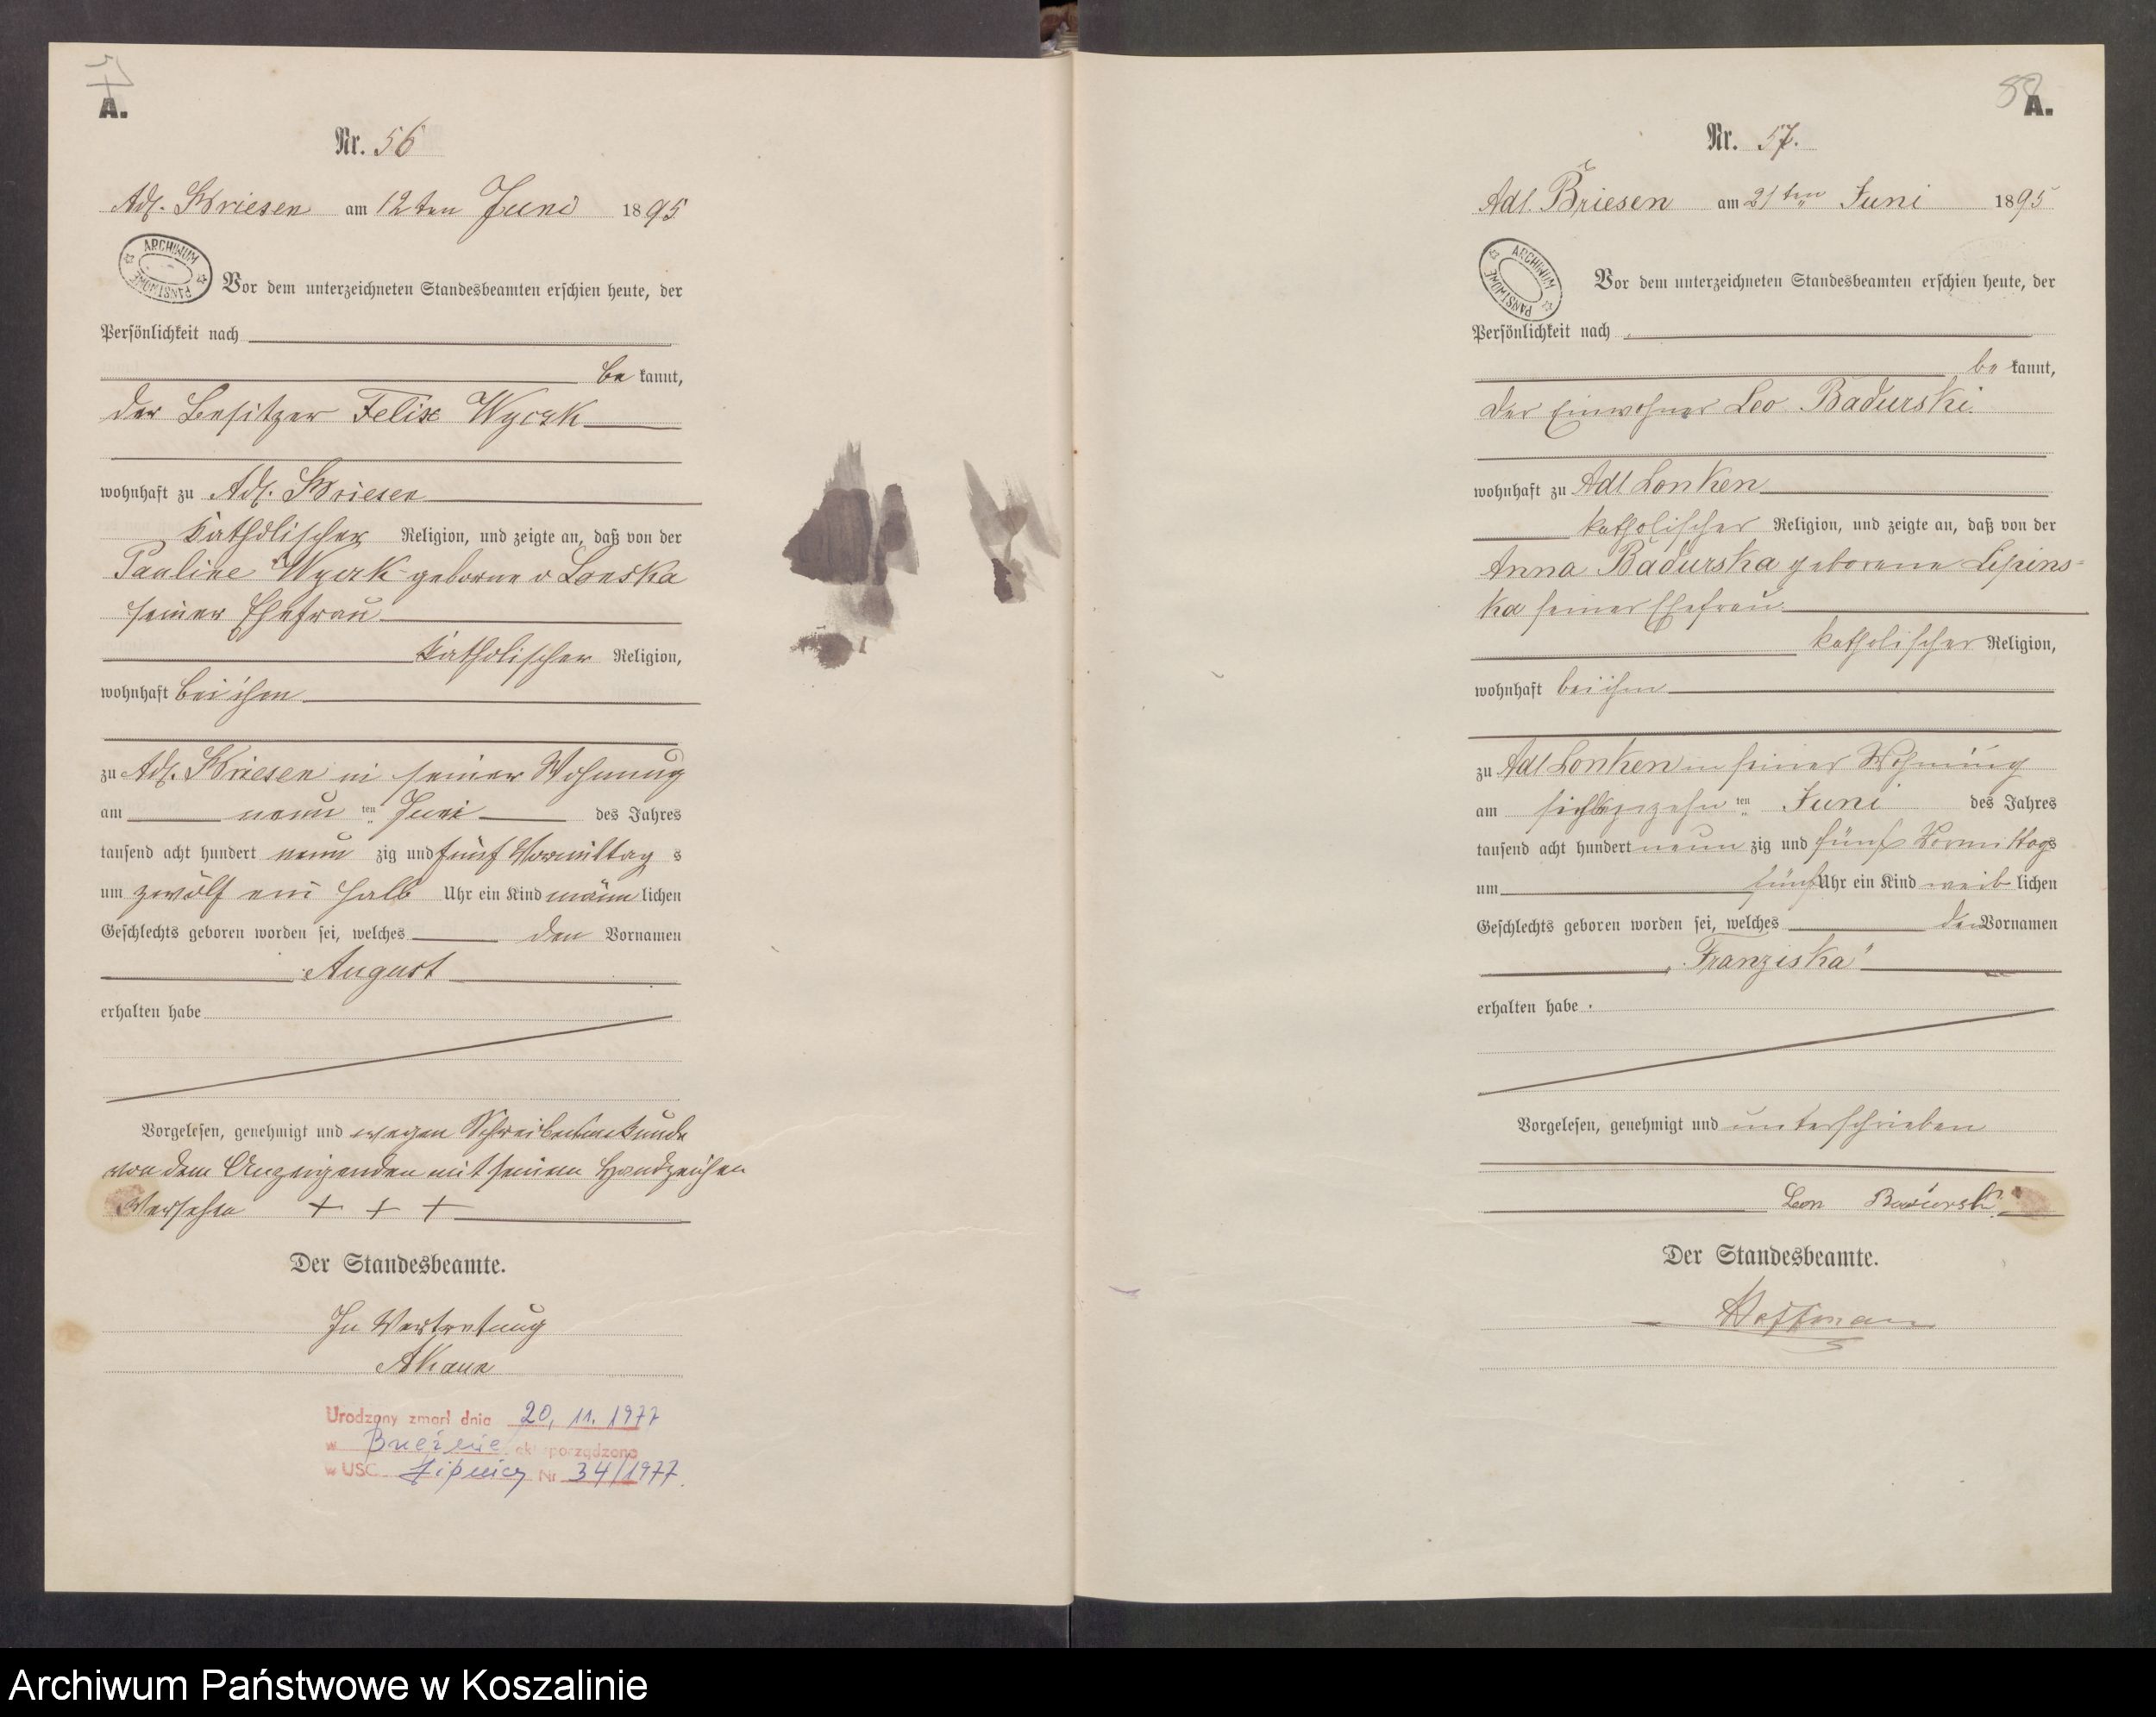 A.
Nr. 56
Adl. Briesen am 12ten Juni 1895
ARCHIWUM PAŃSTWOWE
Vor dem unterzeichneten Standesbeamten erschien heute, der
Persönlichkeit nach
be kannt,
der Besitzer Felix Wyczk
wohnhaft zu Adl. Briesen
katholischer Religion, und zeigte an, daß von der
Pauline Wyczk geborne v
seiner Ehefrau
katholischer Religion,
wohnhaft bei ihm
zu Adl. Briesen in seiner Wohnung
am neun ten Juni des Jahres
tausend acht hundert neun zig und fünf Vormittag s
um zwölf ein halb Uhr ein Kind männ lichen
Geschlechts geboren worden sei, welches den Vornamen
August
erhalten habe
Vorgelesen, genehmigt und wegen Schreibunkunde
von dem Anzeigenden mit seinem Handzeichen
versehen + + +
Der Standesbeamte.
In Vertretung
Urodzony zmarł dnia 20. 11. 1977
w Brzeźnie akt sporządzono
w USC Lipnicy Nr 34/1977.
88
A.
Nr. 57.
Adl. Briesen am 21ten Juni 1895
ARCHIWUM PAŃSTWOWE
Vor dem unterzeichneten Standesbeamten erschien heute, der
Persönlichkeit nach
be kannt,
der Einwohner Leo Badurski
wohnhaft zu Adl Lonken
katholischer Religion, und zeigte an, daß von der
Anna Badurska geborene Lipins-
ka seiner Ehefrau
katholischer Religion,
wohnhaft bei ihm
zu Adl Lonken in seiner Wohnung
am ten Juni des Jahres
tausend acht hundert neun zig und fünf Vormittags
um fünf Uhr ein Kind weib lichen
Geschlechts geboren worden sei, welches den Vornamen
„Franziska"
erhalten habe.
Vorgelesen, genehmigt und unterschrieben
Leon Badurski
Der Standesbeamte.
Hoffmann
Archiwum Państwowe w Koszalinie